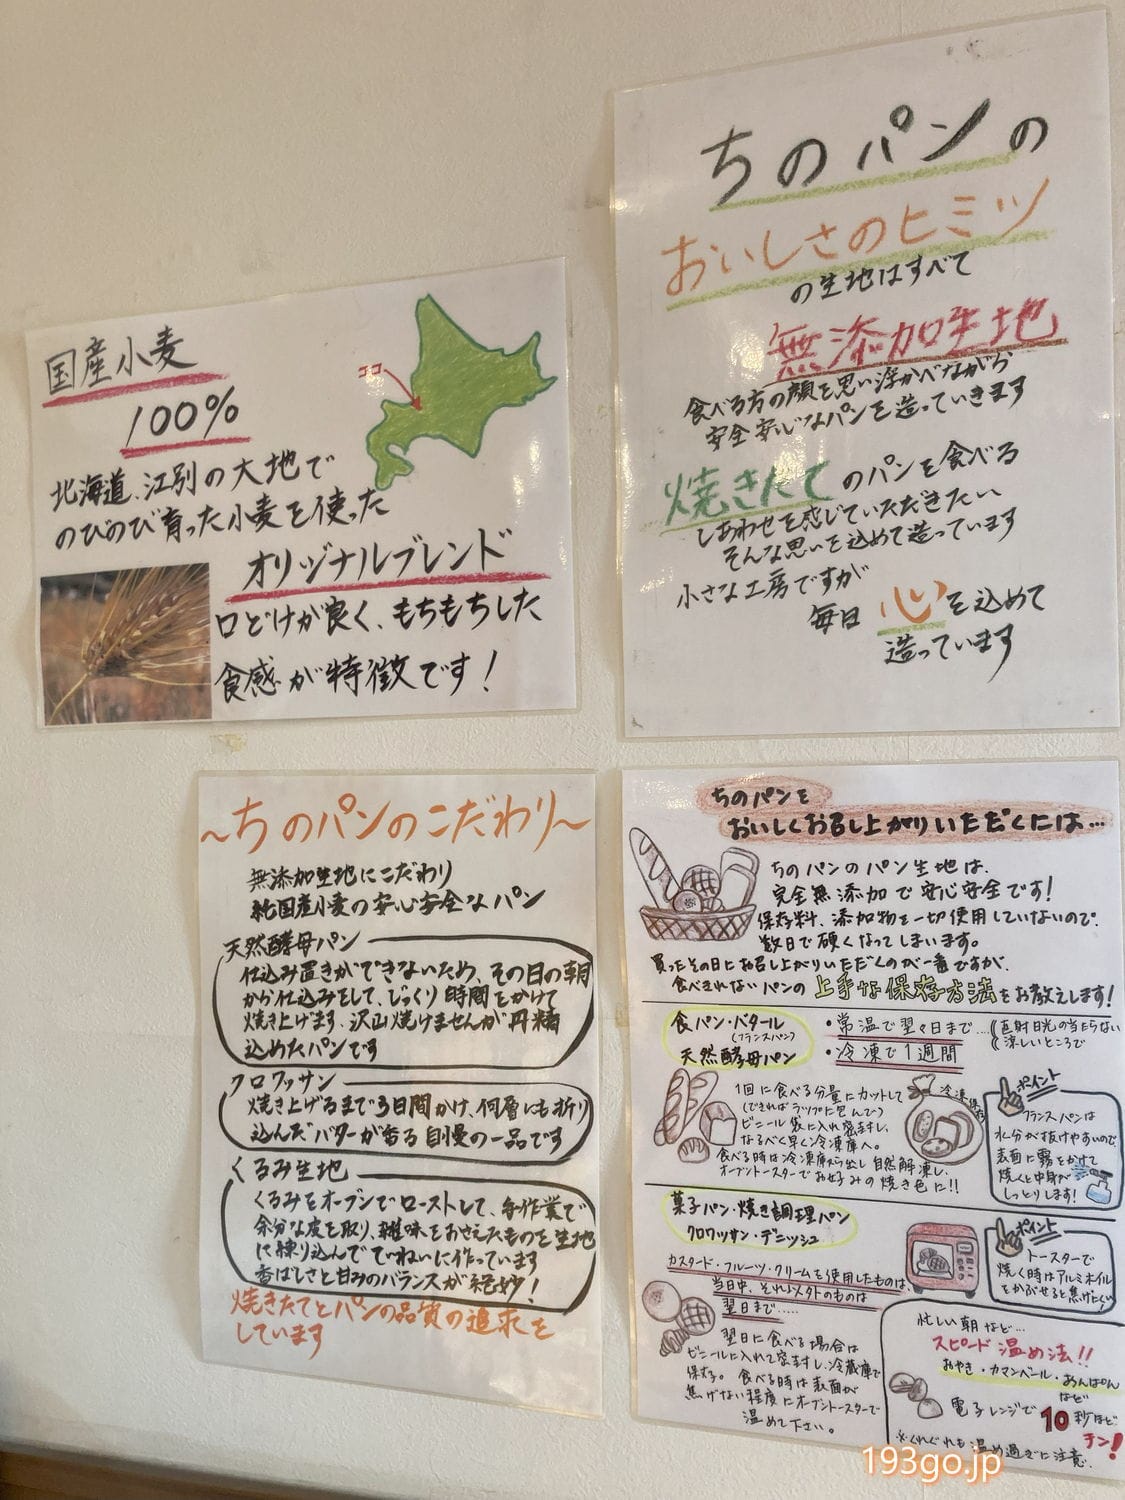 国産小麦
100%
ココ
北海道、江別の大地で
のびのび育った小麦を使った
オリジナルブレンド
口どけが良く、もちもちした
食感が特徴です！
ちのパンの
おいしさのヒミツ
の生地はすべて
無添加生地
食べる方の顔を思い浮かべながら
安全安心なパンを造っていきます
焼きたてのパンを食べる
しあわせを感じていただきたい
そんな思いを込めて造っています
小さな工房ですが
毎日 心を込めて
造っています
～ちのパンのこだわり～
無添加生地にこだわり
純国産小麦の安心安全なパン
天然酵母パン
仕込み置きができないため、その日の朝
から仕込みをして、じっくり時間をかけて
焼き上げます、沢山焼けませんが丹精
込めたパンです
クロワッサン
焼き上げるまで3日間かけ、何層にも折り
込んだバターが香る自慢の一品です
くるみ生地
くるみをオーブンでローストして、手作業で
余分な皮を取り、雑味をおさえたものを生地
に練り込んでていねいに作っています
香ばしさと甘みのバランスが絶妙！
焼きたてとパンの品質の追求を
しています
ちのパンを
おいしくお召し上がりいただくには…
ちのパンのパン生地は、
完全無添加で安心安全です！
保存料、添加物を一切使用していないので、
数日で硬くなってしまいます。
買ったその日にお召し上がりいただくのが一番ですが、
食べきれないパンの上手な保存方法をお教えします！
食パン・バタール
(フランスパン)
天然酵母パン
・常温で翌々日まで…
・冷凍で1週間
直射日光の当たらない
涼しいところで
1回に食べる分量にカットして
(できればラップに包んで)
ビニール袋に入れ密封し、
なるべく早く冷凍庫へ。
食べる時は冷凍庫から出し自然解凍し、
オーブントースターでお好みの焼き色に!!
冷凍保存
ポイント
フランスパンは
水分が抜けやすいので、
表面に霧をかけて
焼くと中身が
しっとりします！
菓子パン・焼き調理パン
クロワッサン・デニッシュ
カスタード・フルーツ・クリームを使用したものは、
当日中、それ以外のものは
翌日まで……
翌日に食べる場合は
ビニールに入れて密封し、冷蔵庫で
保存。食べる時は表面が
焦げない程度にオーブントースターで
温めて下さい。
ポイント
トースターで
焼く時はアルミホイル
をかぶせると焦げにくい！
忙しい朝など…
スピード温め法!!
おやき・カマンベール・あんぱん
など
電子レンジで10秒ほど
チン！
※くれぐれも温め過ぎに注意.
193go.jp